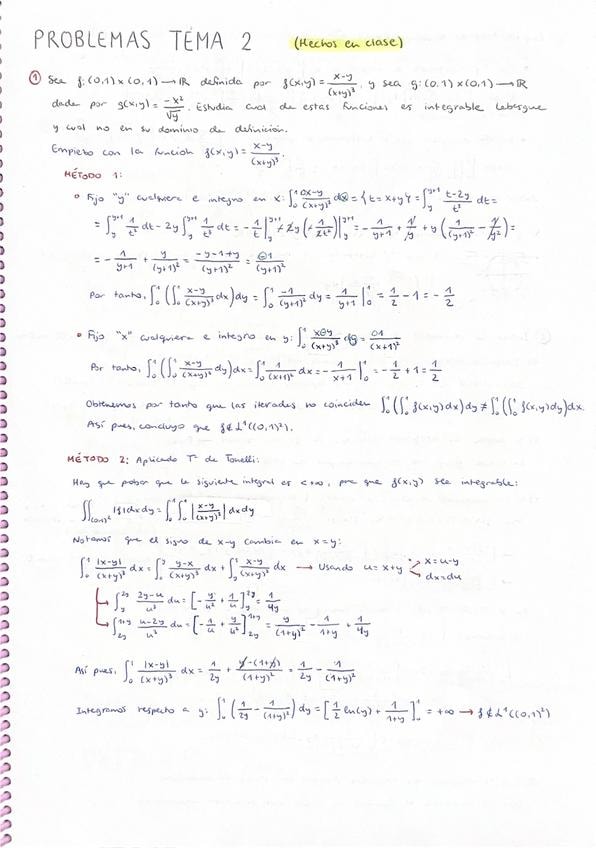 PROBLEMAS TEMA 2 (Hechos en clase)
① Sea f: (0,1) × (0,1) → ℝ definida por f(x,y) = (x-y)/(x+y)³, y sea g: (0,1) × (0,1) → ℝ
dada por g(x,y) = -x²/√y. Estudia cual de estas funciones es integrable Lebesgue
y cual no en su dominio de definición.
Empiezo con la función f(x,y) = (x-y)/(x+y)³.
MÉTODO 1:
• Fijo "y" cualquiera e integro en x: ∫₀¹ (x-y)/(x+y)³ dx = {t = x+y} = ∫_y^{y+1} (t-2y)/t³ dt =
= ∫_y^{y+1} 1/t² dt - 2y ∫_y^{y+1} 1/t³ dt = -1/t |_y^{y+1} - 2y (-1/(2t²)) |_y^{y+1} = -1/(y+1) + 1/y + y (1/(y+1)² - 1/y²) =
= -1/(y+1) + y/(y+1)² = (-y-1+y)/(y+1)² = -1/(y+1)²
Por tanto, ∫₀¹ (∫₀¹ (x-y)/(x+y)³ dx) dy = ∫₀¹ -1/(y+1)² dy = 1/(y+1) |₀¹ = 1/2 - 1 = -1/2
• Fijo "x" cualquiera e integro en y: ∫₀¹ (x-y)/(x+y)³ dy = 1/(x+1)²
Por tanto, ∫₀¹ (∫₀¹ (x-y)/(x+y)³ dy) dx = ∫₀¹ 1/(x+1)² dx = -1/(x+1) |₀¹ = -1/2 + 1 = 1/2
Obtenemos por tanto que las iteradas no coinciden ∫₀¹ (∫₀¹ f(x,y) dx) dy ≠ ∫₀¹ (∫₀¹ f(x,y) dy) dx.
Así pues, concluyo que f ∉ L¹((0,1)²).
MÉTODO 2: Aplicado Tª de Tonelli:
Hay que probar que la siguiente integral es < +∞, para que f(x,y) sea integrable:
∬_{(0,1)²} |f| dx dy = ∫₀¹ ∫₀¹ |(x-y)/(x+y)³| dx dy
Notamos que el signo de x-y cambia en x=y:
∫₀¹ |x-y|/(x+y)³ dx = ∫₀^y (y-x)/(x+y)³ dx + ∫_y^1 (x-y)/(x+y)³ dx → Usando u = x+y → x = u-y
dx = du
∫_y^{2y} (2y-u)/u³ du = [-y/u² + 1/u]_y^{2y} = 1/4y
∫_{2y}^{1+y} (u-2y)/u³ du = [-1/u + y/u²]_{2y}^{1+y} = y/(1+y)² - 1/(1+y) + 1/4y
Así pues, ∫₀¹ |x-y|/(x+y)³ dx = 1/2y + (y-(1+y))/(1+y)² = 1/2y - 1/(1+y)²
Integramos respecto a y: ∫₀¹ (1/2y - 1/(1+y)²) dy = [1/2 ln(y) + 1/(1+y)]₀¹ = +∞ → f ∉ L¹((0,1)²)